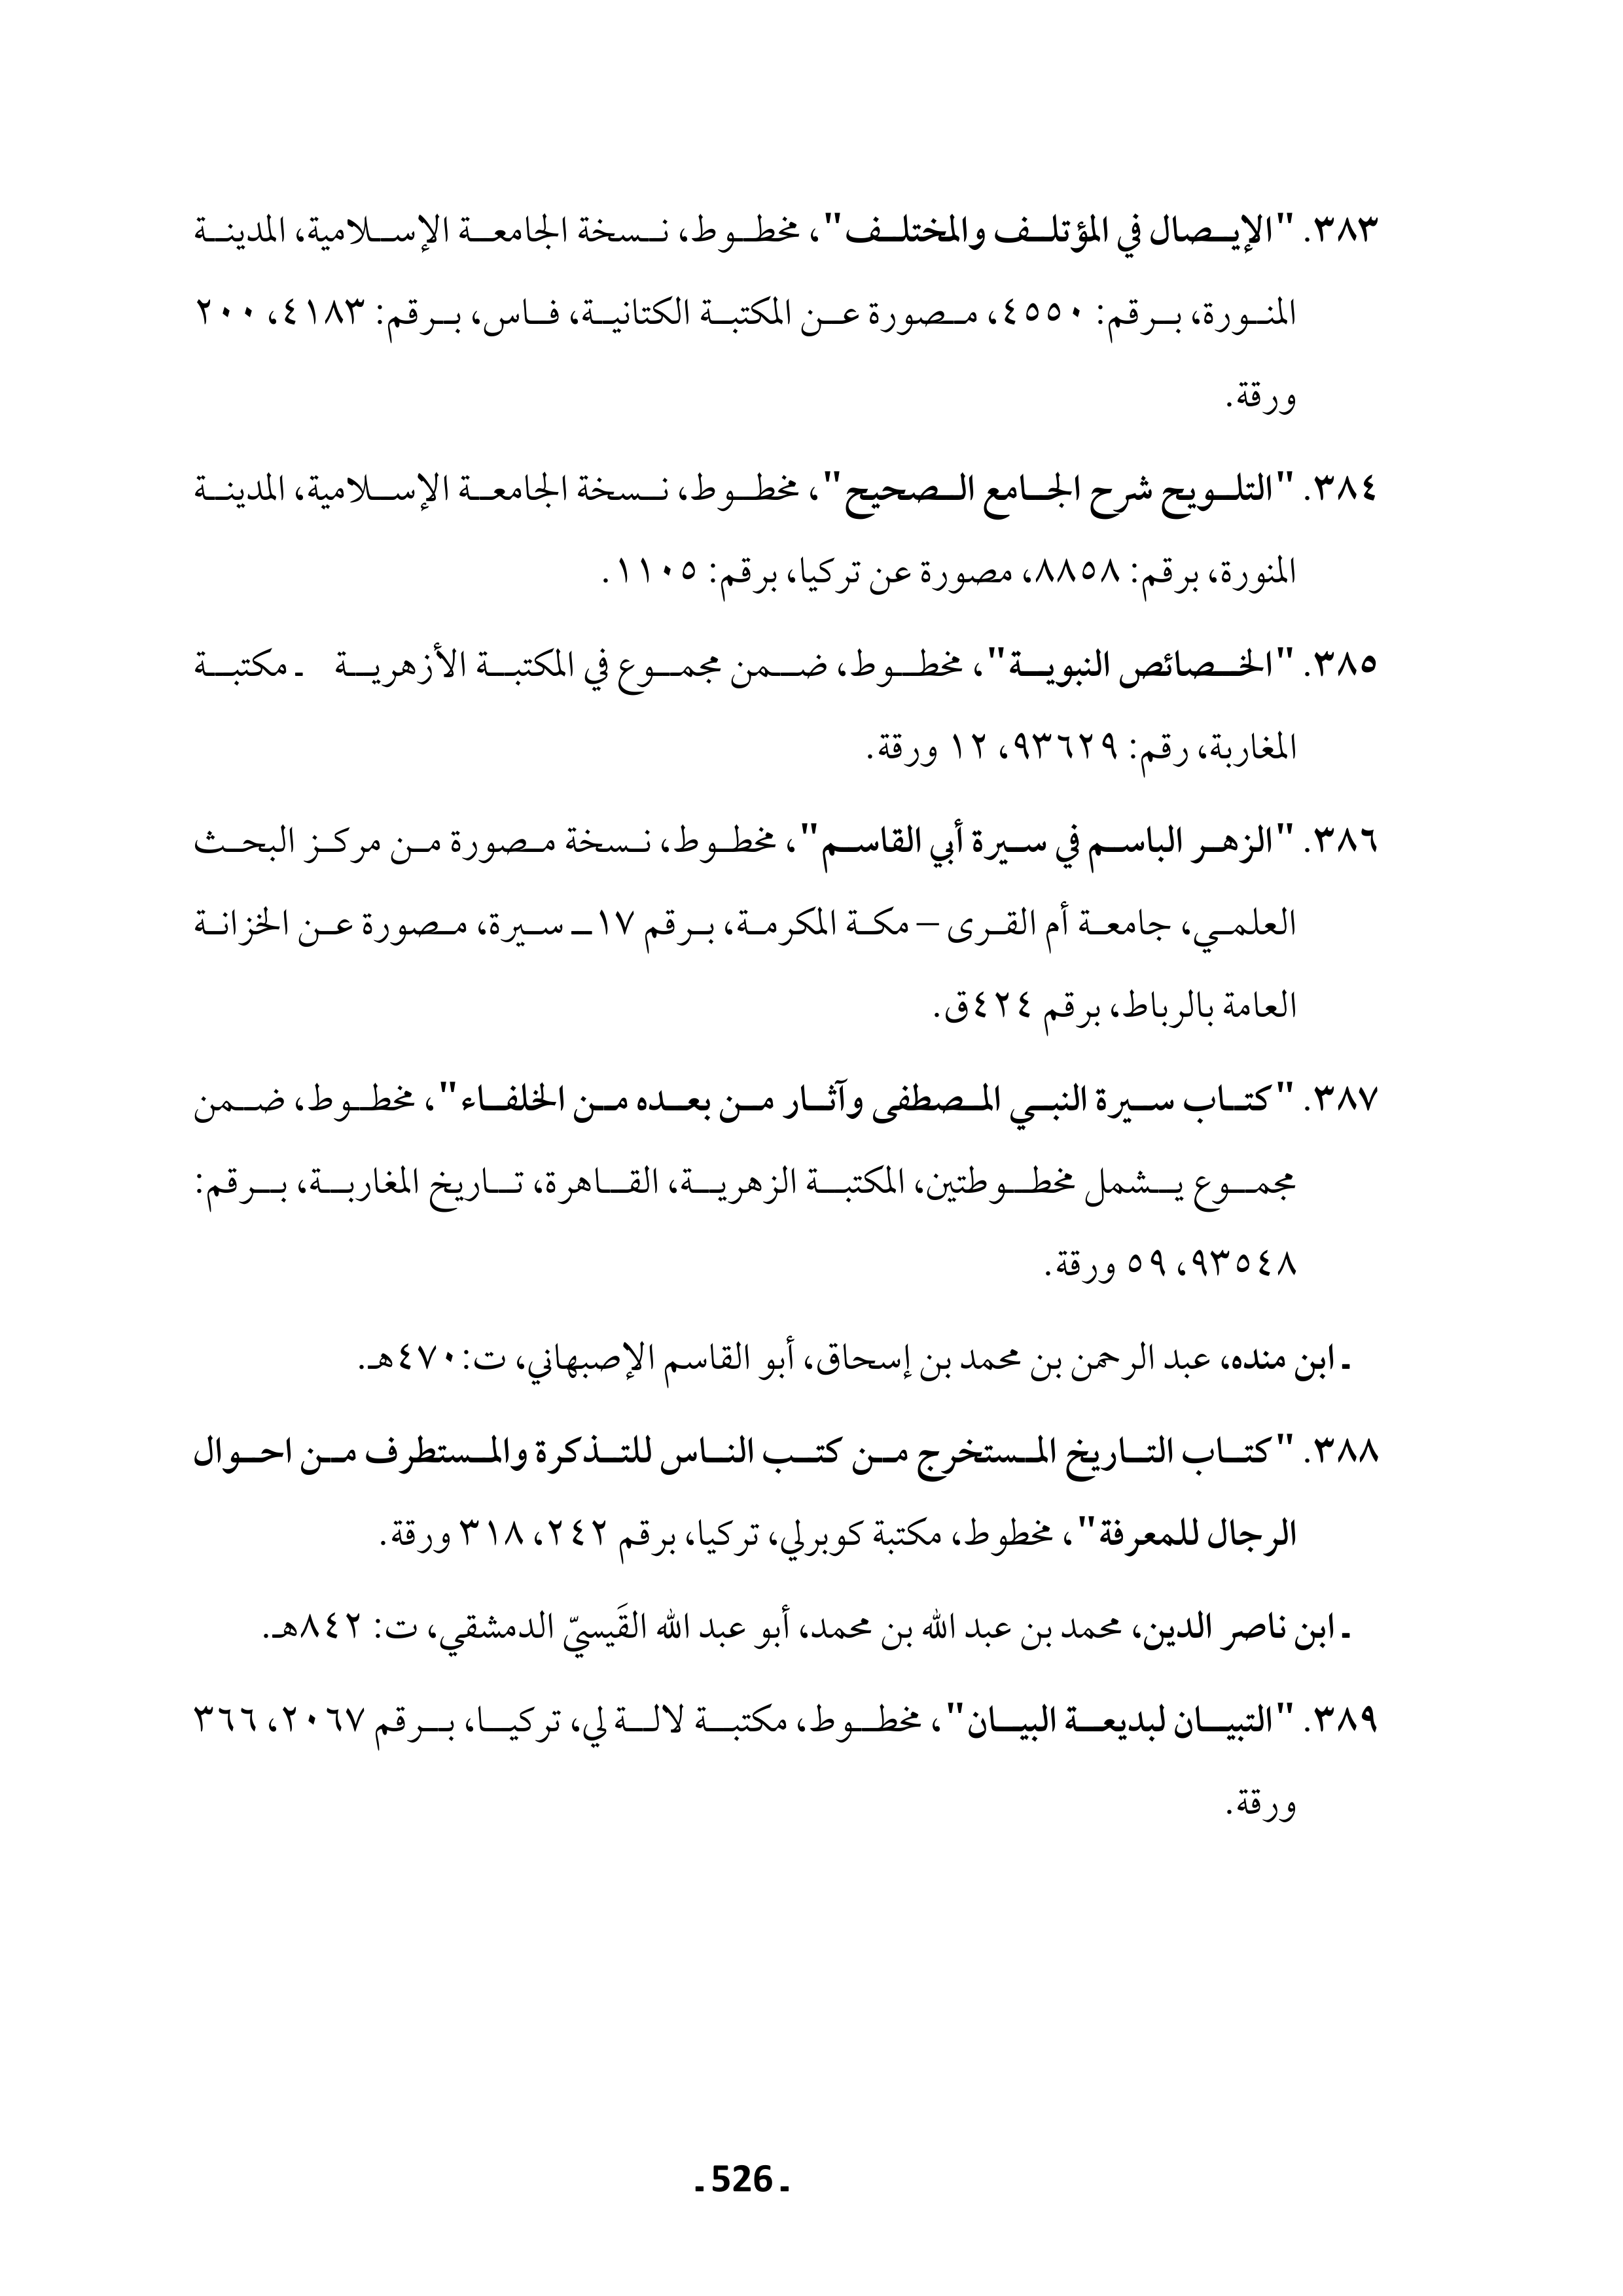 ٣٨٣. "الإيصال في المؤتلف والمختلف"، مخطوط، نسخة الجامعة الإسلامية، المدينة
المنورة، برقم: ٤٥٥٠، مصورة عن المكتبة الكتانية، فاس، برقم: ٤١٨٣، ٢٠٠
ورقة.
٣٨٤. "التلويح شرح الجامع الصحيح"، مخطوط، نسخة الجامعة الإسلامية، المدينة
المنورة، برقم: ٨٨٥٨، مصورة عن تركيا، برقم: ١١٠٥.
٣٨٥. "الخصائص النبوية"، مخطوط، ضمن مجموع في المكتبة الأزهرية ـ مكتبة
المغاربة، رقم: ٩٣٦٢٩، ١٢ ورقة.
٣٨٦. "الزهر الباسم في سيرة أبي القاسم"، مخطوط، نسخة مصورة من مركز البحث
العلمي، جامعة أم القرى – مكة المكرمة، برقم ١٧ـ سيرة، مصورة عن الخزانة
العامة بالرباط، برقم ٤٢٤ق.
٣٨٧. "كتاب سيرة النبي المصطفى وآثار من بعده من الخلفاء"، مخطوط، ضمن
مجموع يشمل مخطوطتين، المكتبة الزهرية، القاهرة، تاريخ المغاربة، برقم:
٩٣٥٤٨، ٥٩ ورقة.
ـ ابن منده، عبد الرحمن بن محمد بن إسحاق، أبو القاسم الإصبهاني، ت:٤٧٠هـ.
٣٨٨. "كتاب التاريخ المستخرج من كتب الناس للتذكرة والمستطرف من احوال
الرجال للمعرفة"، مخطوط، مكتبة كوبرلي، تركيا، برقم ٢٤٢، ٣١٨ ورقة.
ـ ابن ناصر الدين، محمد بن عبد الله بن محمد، أبو عبد الله القَيسيّ الدمشقي، ت: ٨٤٢هـ.
٣٨٩. "التبيان لبديعة البيان"، مخطوط، مكتبة لالة لي، تركيا، برقم ٢٠٦٧، ٣٦٦
ورقة.
ـ 526 ـ